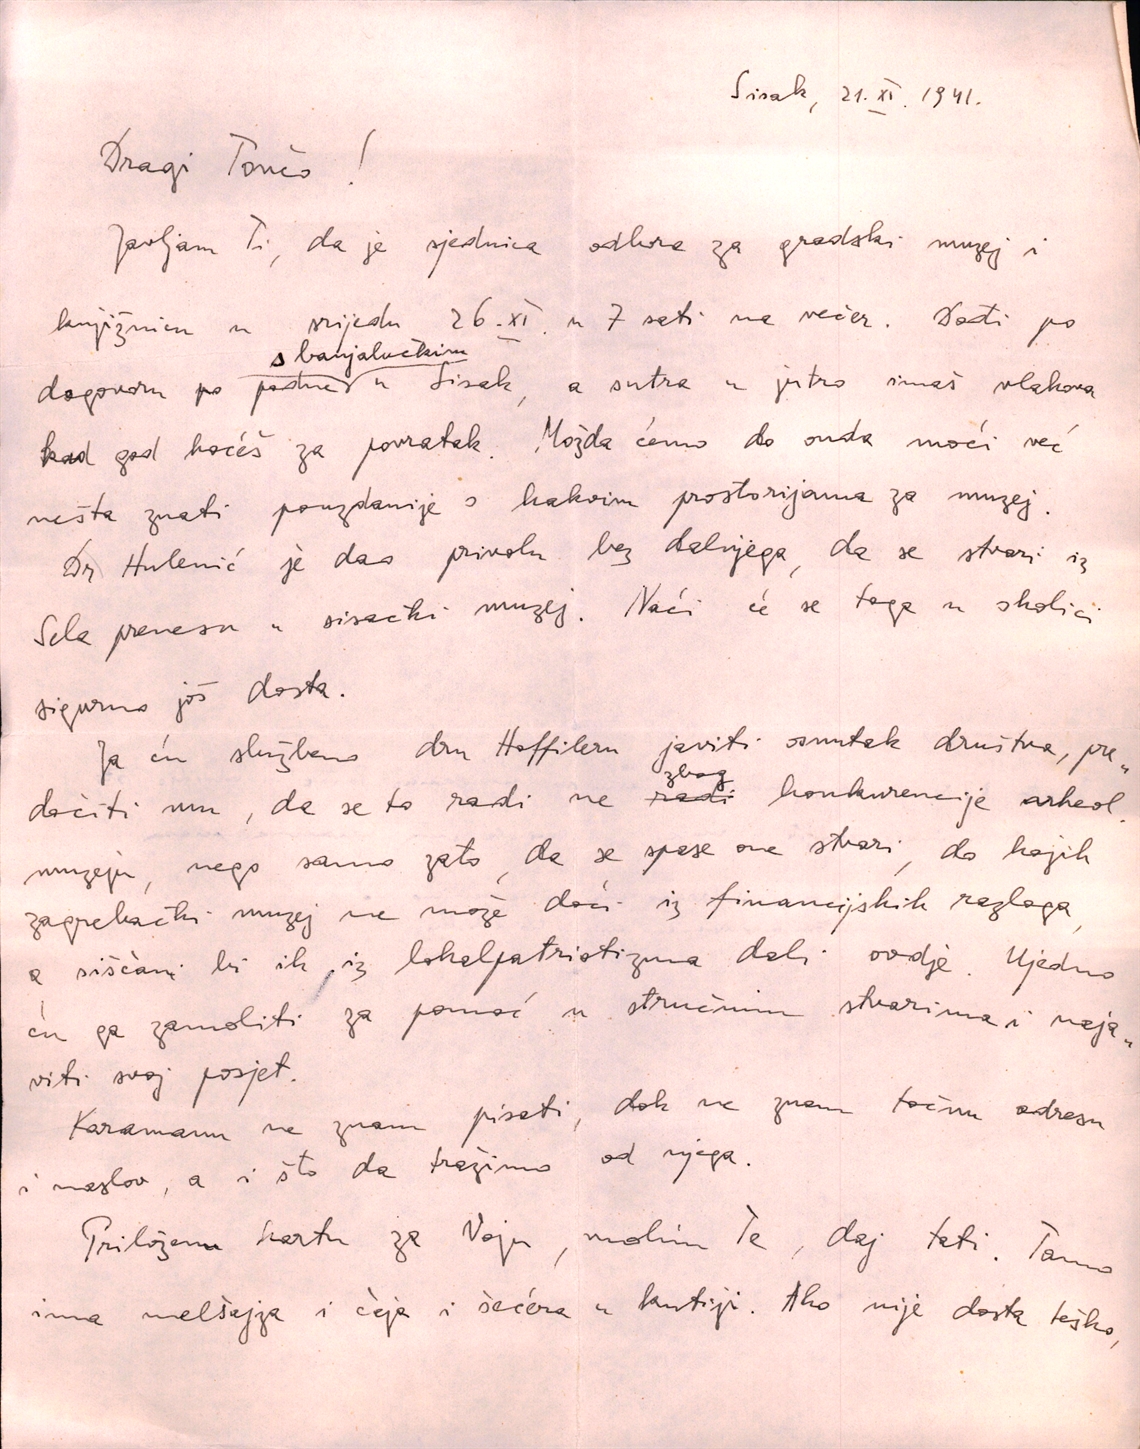 Sisak, 21. XI. 1941.
Dragi Tončo!
Javljam Ti, da je sjednica odbora za gradski muzej i
knjižnicu u srijedu 26. XI. u 7 sati na večer. Dođi po
s banjalučkim
dogovoru po podne u Sisak, a sutra u jutro imaš vlakova
kad god hoćeš za povratak. Možda ćemo do onda moći već
nešta znati pouzdanije o kakvim prostorijama za muzej.
Dr Hulenić je dao privolu bez daljnjega, da se stvari iz
Sela prenesu u sisački muzej. Naći će se toga u okolici
sigurno još dosta.
Ja ću službeno dru Hoffileru javiti osnutak društva, pre„
zbog
dočiti mu, da se to radi ne radi konkurencije arheol.
muzeju, nego samo zato, da se spase one stvari, do kojih
zagrebački muzej ne može doći iz financijskih razloga,
a sišćani bi ih iz lokalpatriotizma dali ovdje. Ujedno
ću ga zamoliti za pomoć u stručnim stvarima i naja„
viti svoj posjet.
Karamanu ne znam pisati, dok ne znam točnu adresu
i naslov, a i što da tražimo od njega.
Priloženu kartu za Voju, molim Te, daj tati. Tamo
ima melšpajza i čaja i šećera u kutiji. Ako nije dosta teško,